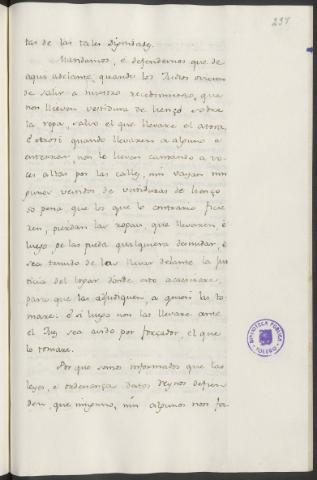 237
tas de las tales Dignidades.
Mandamos, e defendemos que de
aqui adelante, quando los Judios ovieren
de salir a nuestro recebimiento, que
non lleven vestidura de lienzo sobre
la ropa, salvo el que llevare el atora,
é otrosi quando llevaren a alguno a
enterrar, non le lleven cantando a vo-
ces altas por las calles, nin vayan nin
punen vestidos de vestiduras de lienzo
so pena, que los que lo contrario ficie-
ren, pierdan las ropas que llevaren, é
luego, ge las pueda qualquiera desnudar, é
sea tenudo de las llevar delante la Jus
ticia del logar donde esto acaesciere,
para que las adjudiquen a quien las to-
mare. É si luego non las llevare ante
el Juez sea avido por forzador, el que
lo tomare.
Por que somos informados que las
leyes, e ordenanzas destos Reynos defien-
den, que ningunos, nin algunos non fa
BIBLIOTECA PUBLICA
TOLEDO